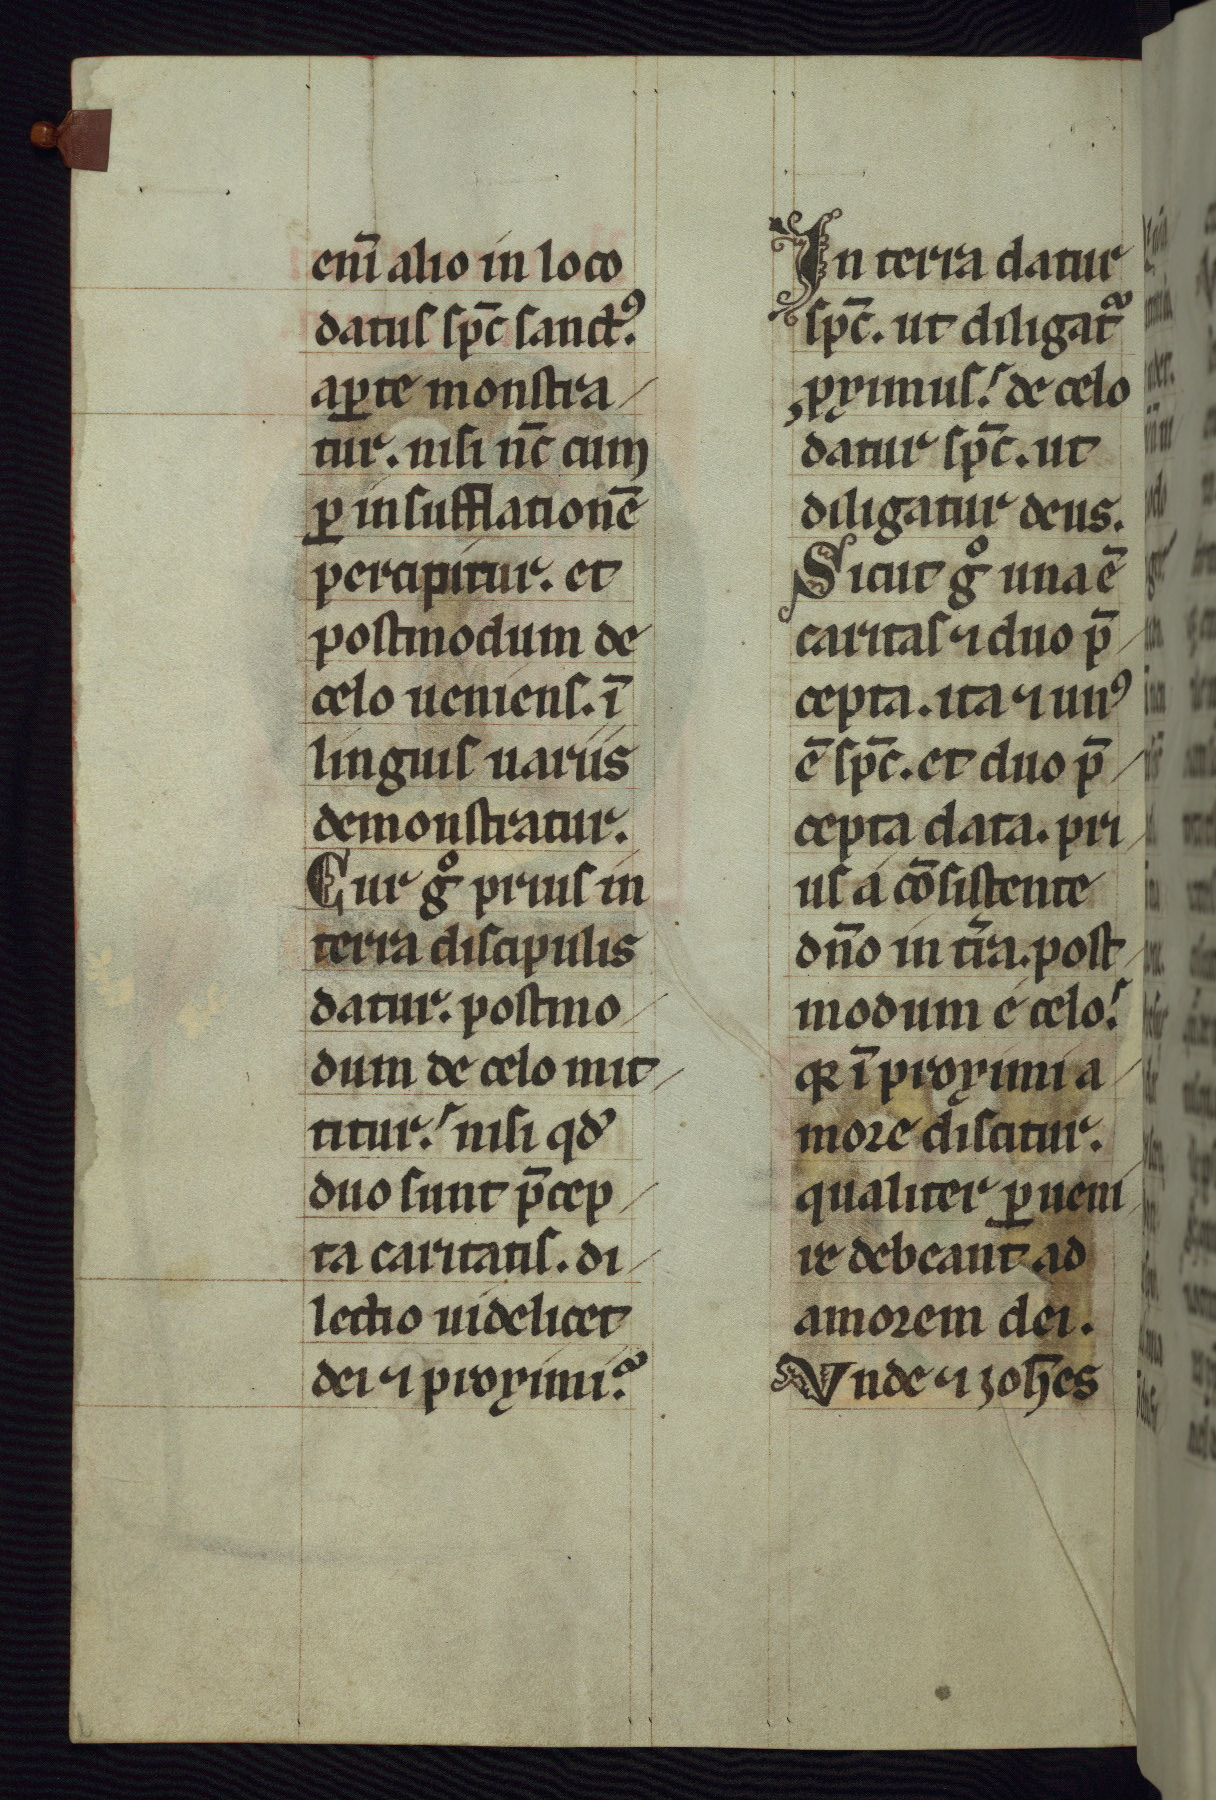 enī alio in loco
datus sp̄c sanctꝰ.
aꝑte monstra
tur. nisi nc̄ cum
ꝑ insufflationē
percipitur. et
postmodum de
celo ueniens. ī
linguis uariis
demonstratur.
Cur gͦ prius in
terra discipulis
datur. postmo
dum de celo mit
titur. nisi qd̾
duo sunt p̄cep
ta caritatis. di
lectio uidelicet
dei ⁊ proximi.
In terra datur
sp̄c. ut diligat᷑
ꝓximus. de celo
datur sp̄c. ut
diligatur deus.
Sicut gͦ una ē
caritas ⁊ duo p̄
cepta. ita ⁊ unꝰ
ē sp̄c. et duo p̄
cepta data. pri
us a cōsistente
dn̄o in tr̄a. post
modum e celo.
qꝛ ī proximi a
more discitur.
qualiter ꝑueni
re debeant ad
amorem dei.
Vnde ⁊ ioh̄es